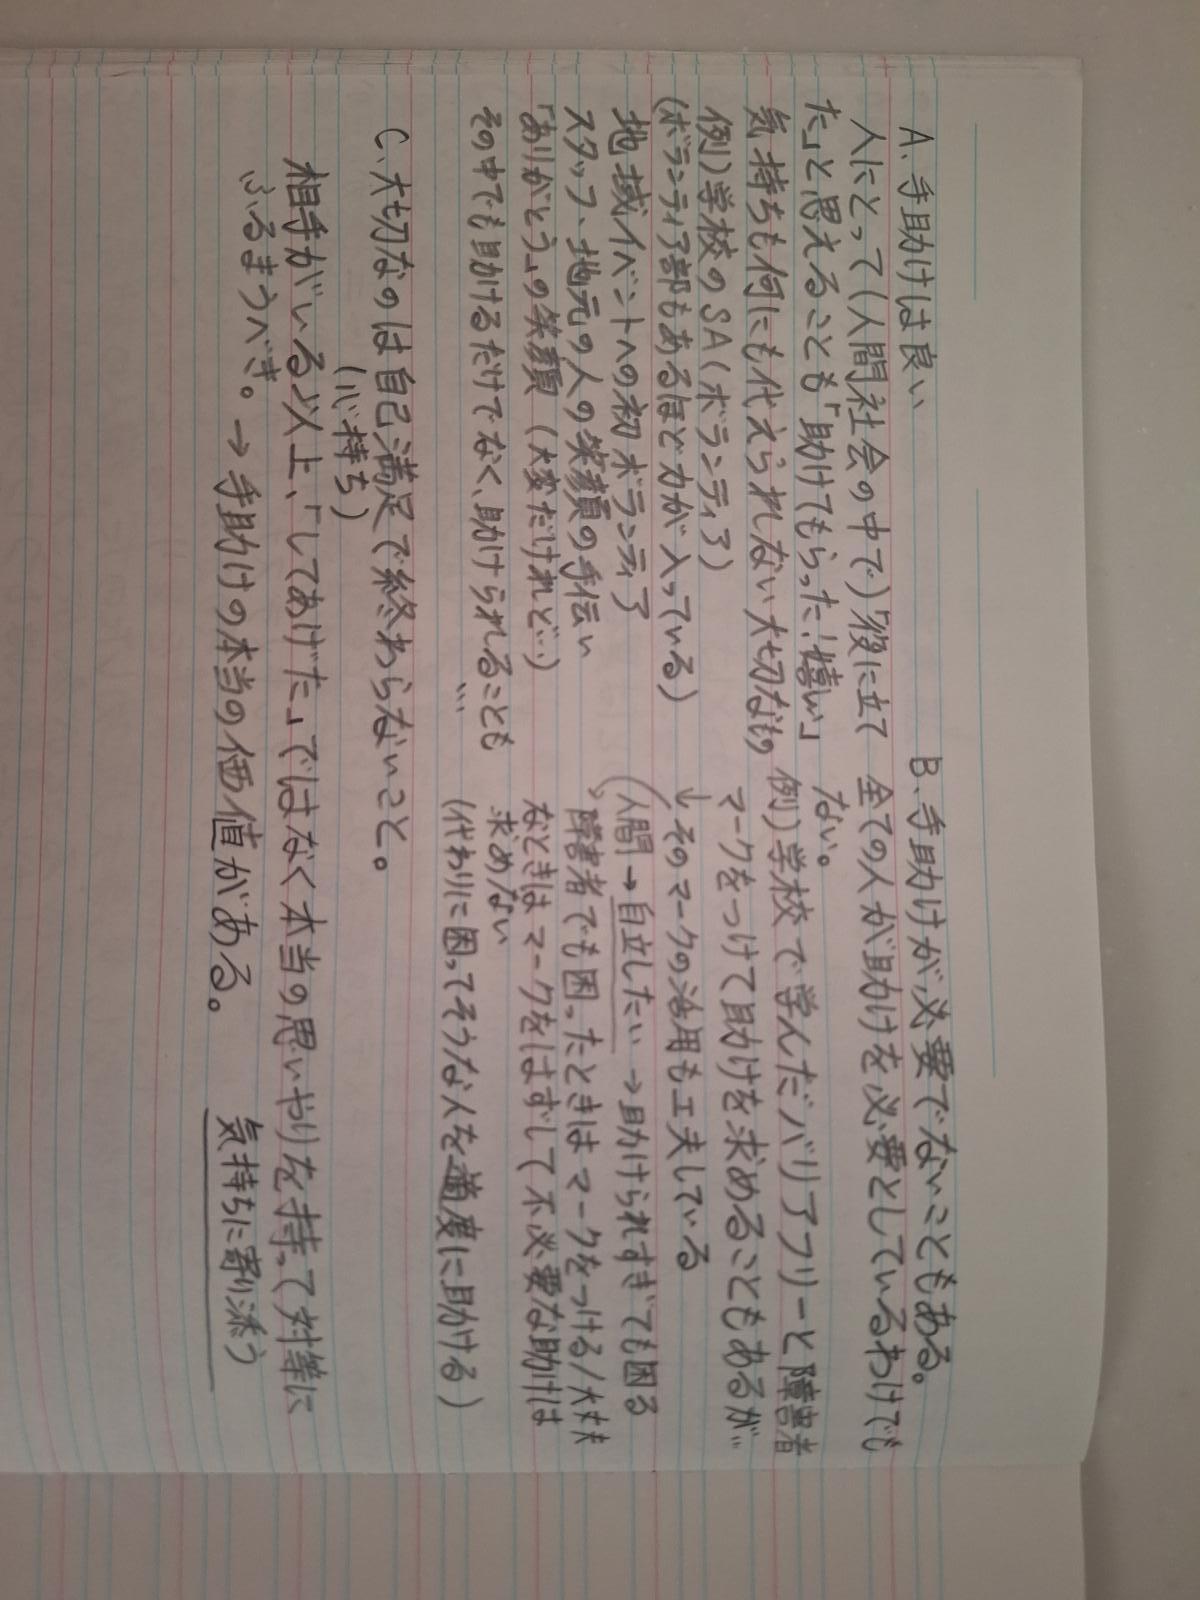 A. 手助けは良い
人にとって(人間社会の中で)「役に立て
た」と思えることも「助けてもらった!嬉しい」
気持ちも何にも代えられない大切なもの
例)学校のSA(ボランティア)
(ボランティア部もあるほど力が入っている)
地域イベントへの初ボランティア
スタッフ、地元の人の笑顔の手伝い
「ありがとう」の笑顔(大変だけれど…)
その中でも助けるだけでなく、助けられることも
…
B. 手助けが必要でないこともある。
全ての人が助けを必要としているわけでも
ない。
例)学校で学んだバリアフリーと障害者
マークをつけて助けを求めることもあるが…
↓そのマークの活用も工夫している
(人間→自立したい→助けられすぎても困る
↳障害者でも困ったときはマークをつける/大丈夫
なときはマークをはずして不必要な助けは
求めない
(代わりに困ってそうな人を適度に助ける)
C. 大切なのは自己満足で終わらないこと。
(心持ち)
相手がいる以上、「してあげた」ではなく本当の思いやりを持って対等に
ふるまうべき。→手助けの本当の価値がある。
気持ちに寄り添う